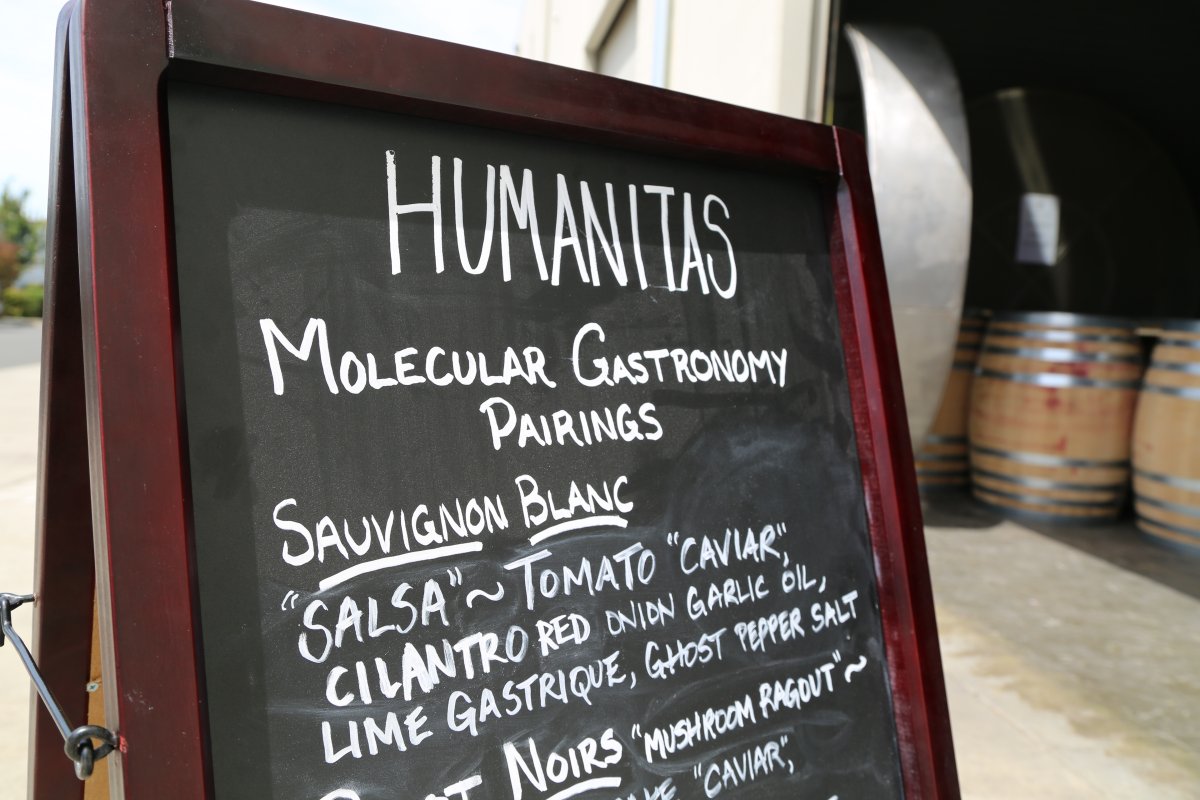 HUMANITAS
MOLECULAR GASTRONOMY
PAIRINGS
SAUVIGNON BLANC
"SALSA" ~ TOMATO "CAVIAR",
CILANTRO RED ONION GARLIC OIL,
LIME GASTRIQUE, GHOST PEPPER SALT
NOIRS "MUSHROOM RAGOUT" ~
"CAVIAR",